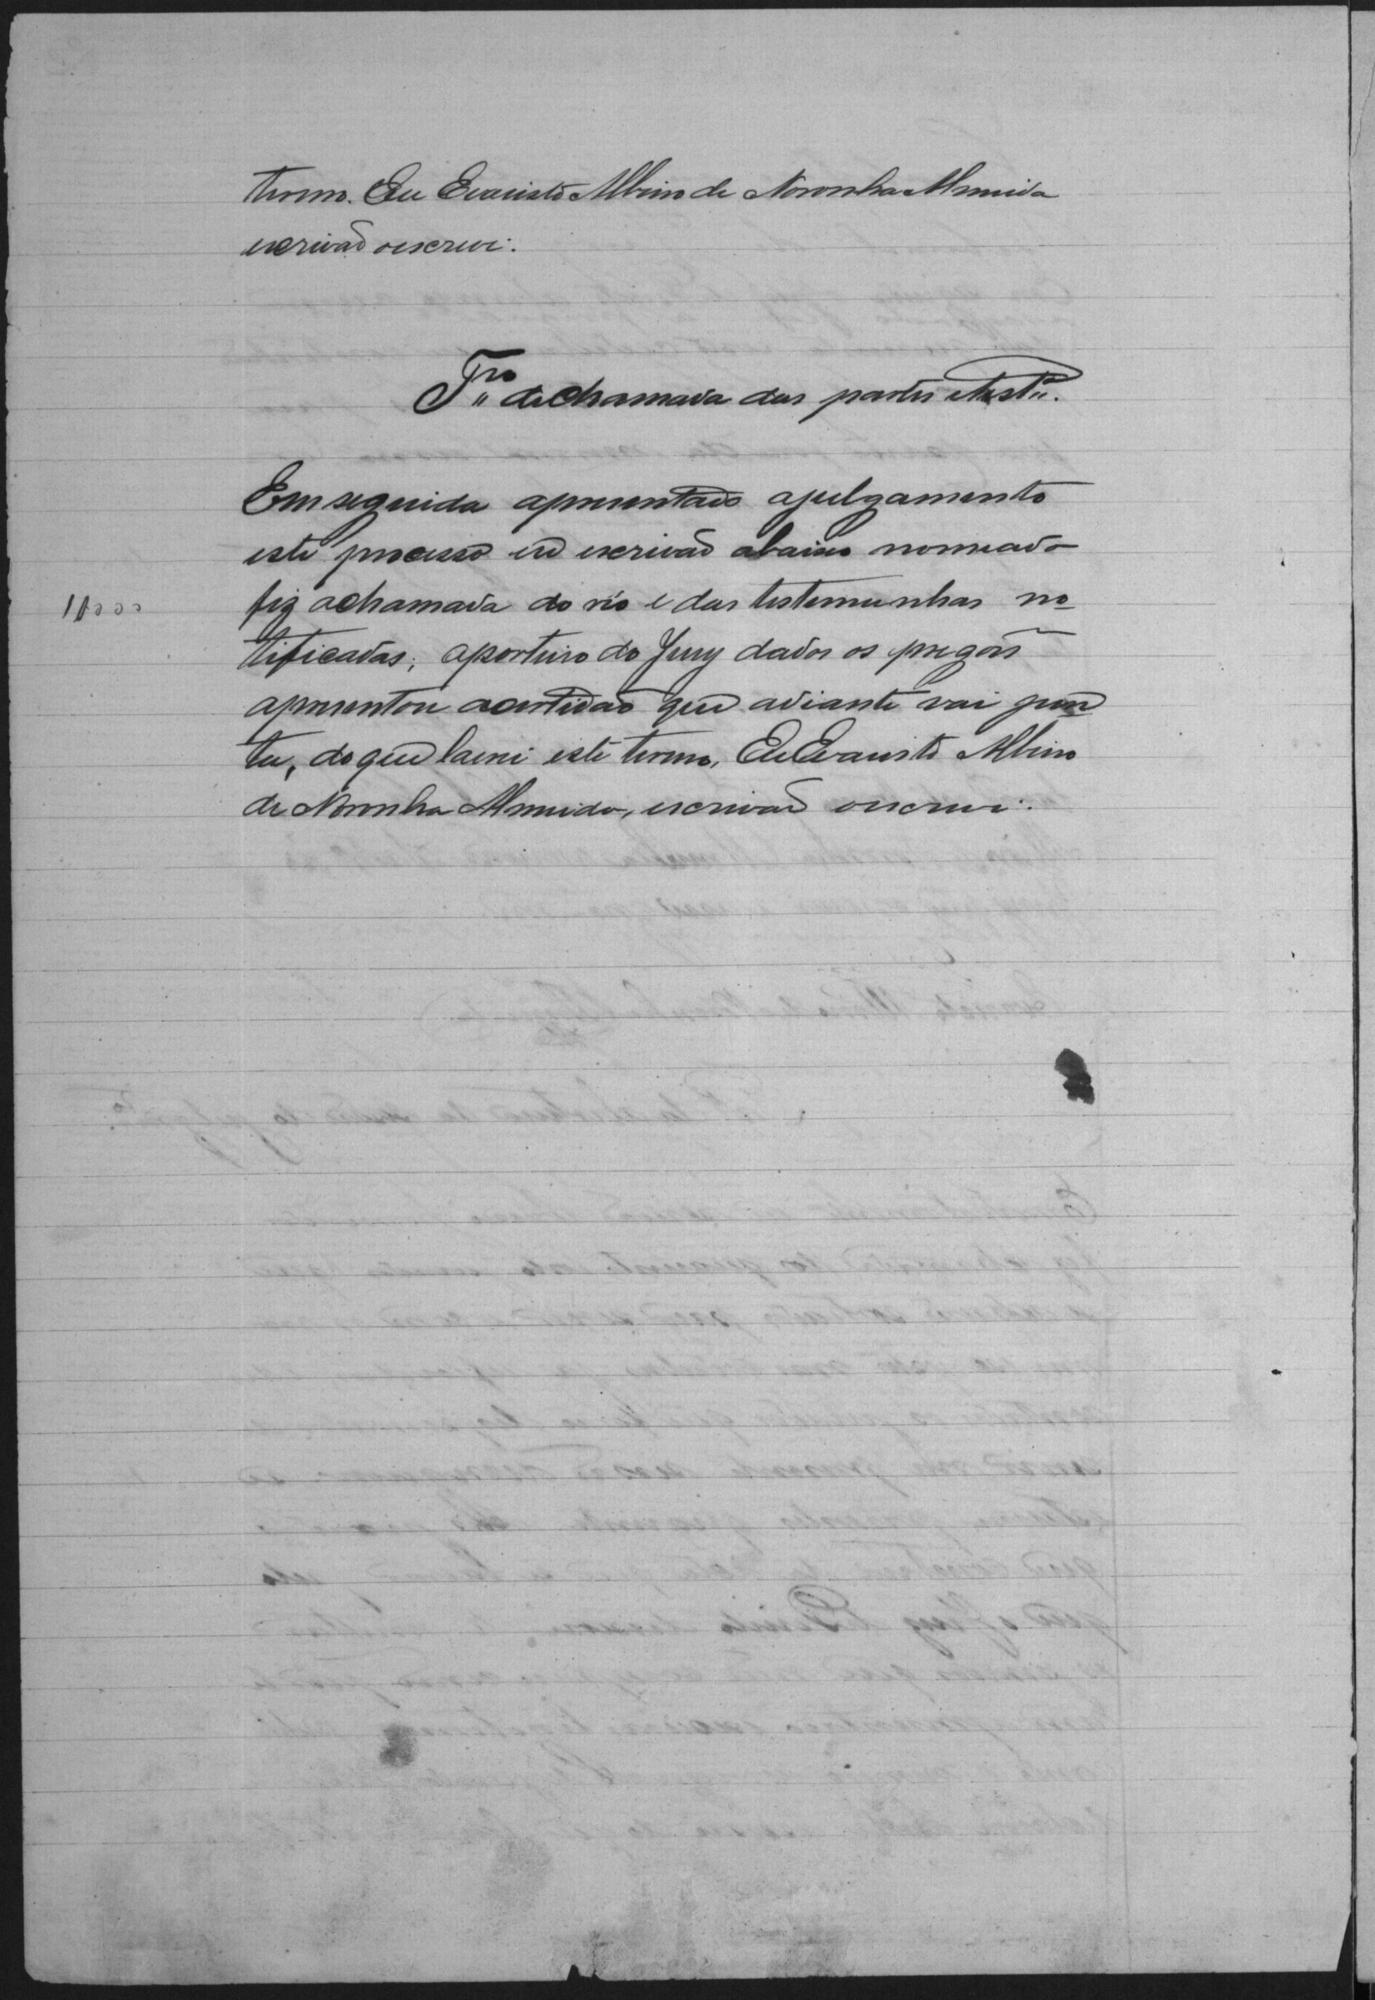 termo. Eu Evaristo Albino de Noronha Almeida
escrivaõ oescrevi:.
Tro de chamada das partes e test.as.
Em seguida apresentado ajulgamento
este processo eu escrivaõ abaixo nomeado
fiz achamada do réo e das testemunhas no
tificadas; oporteiro do Jury dados os pregões
apresentou acertidaõ que adiante vai jun
ta, do que lavrei este termo. Eu Evaristo Albino
de Noronha Almeida, escrivaõ oescrevi:.